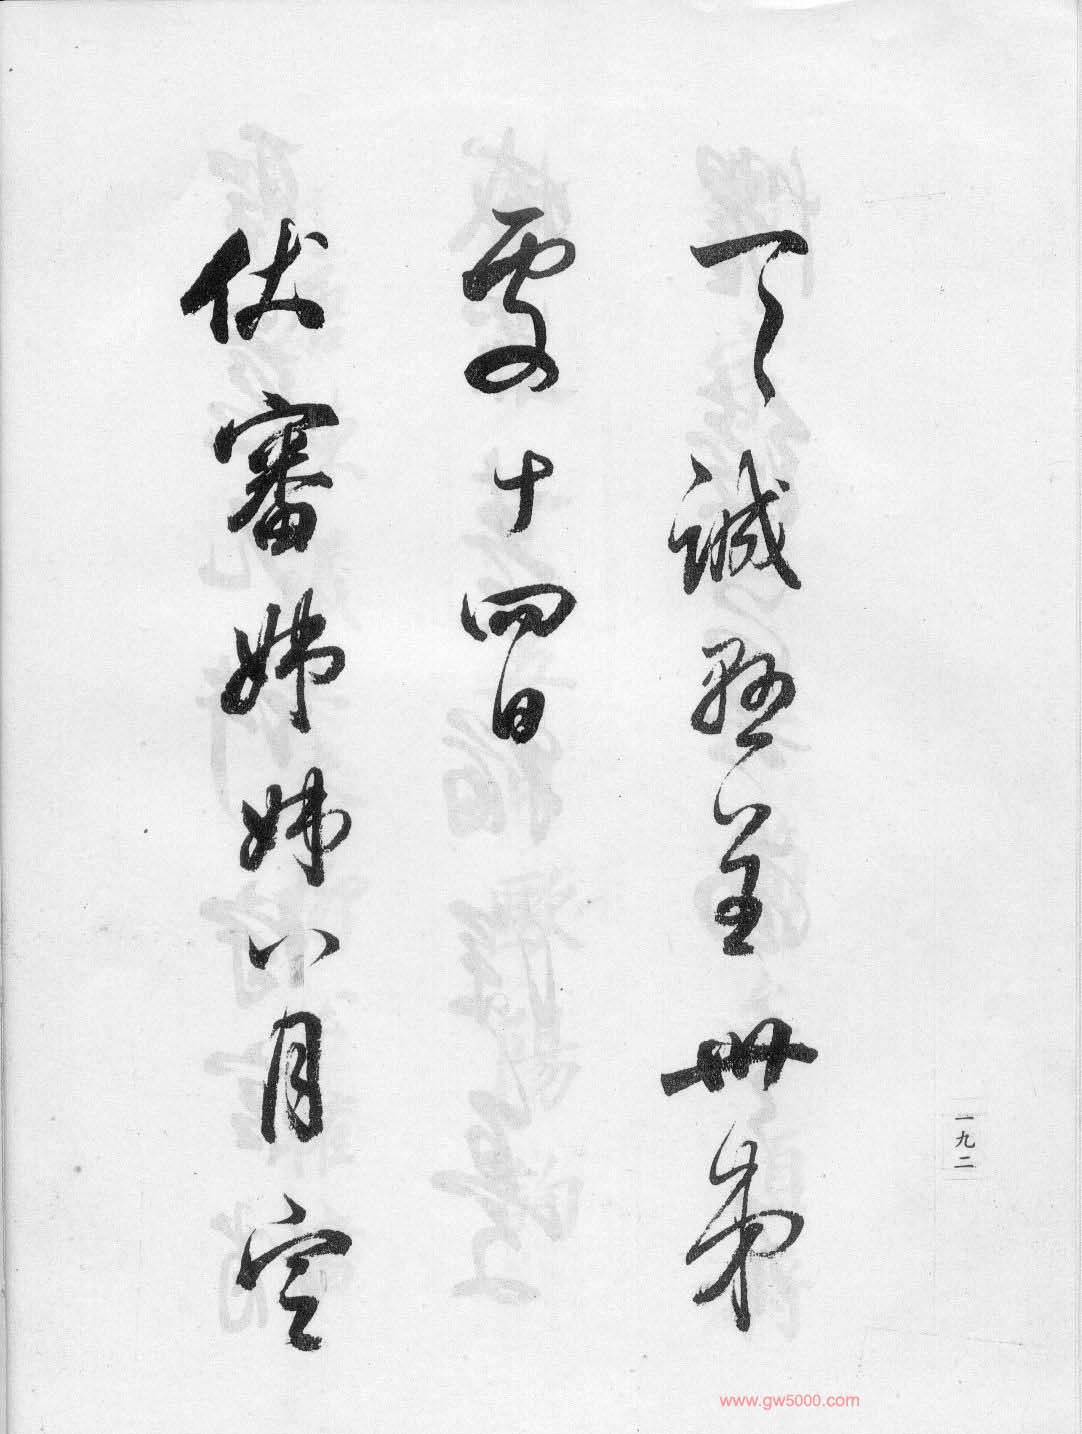 下誠懇至卌弟
處十四日
伏審姊姊八月定
一九二
www.gw5000.com